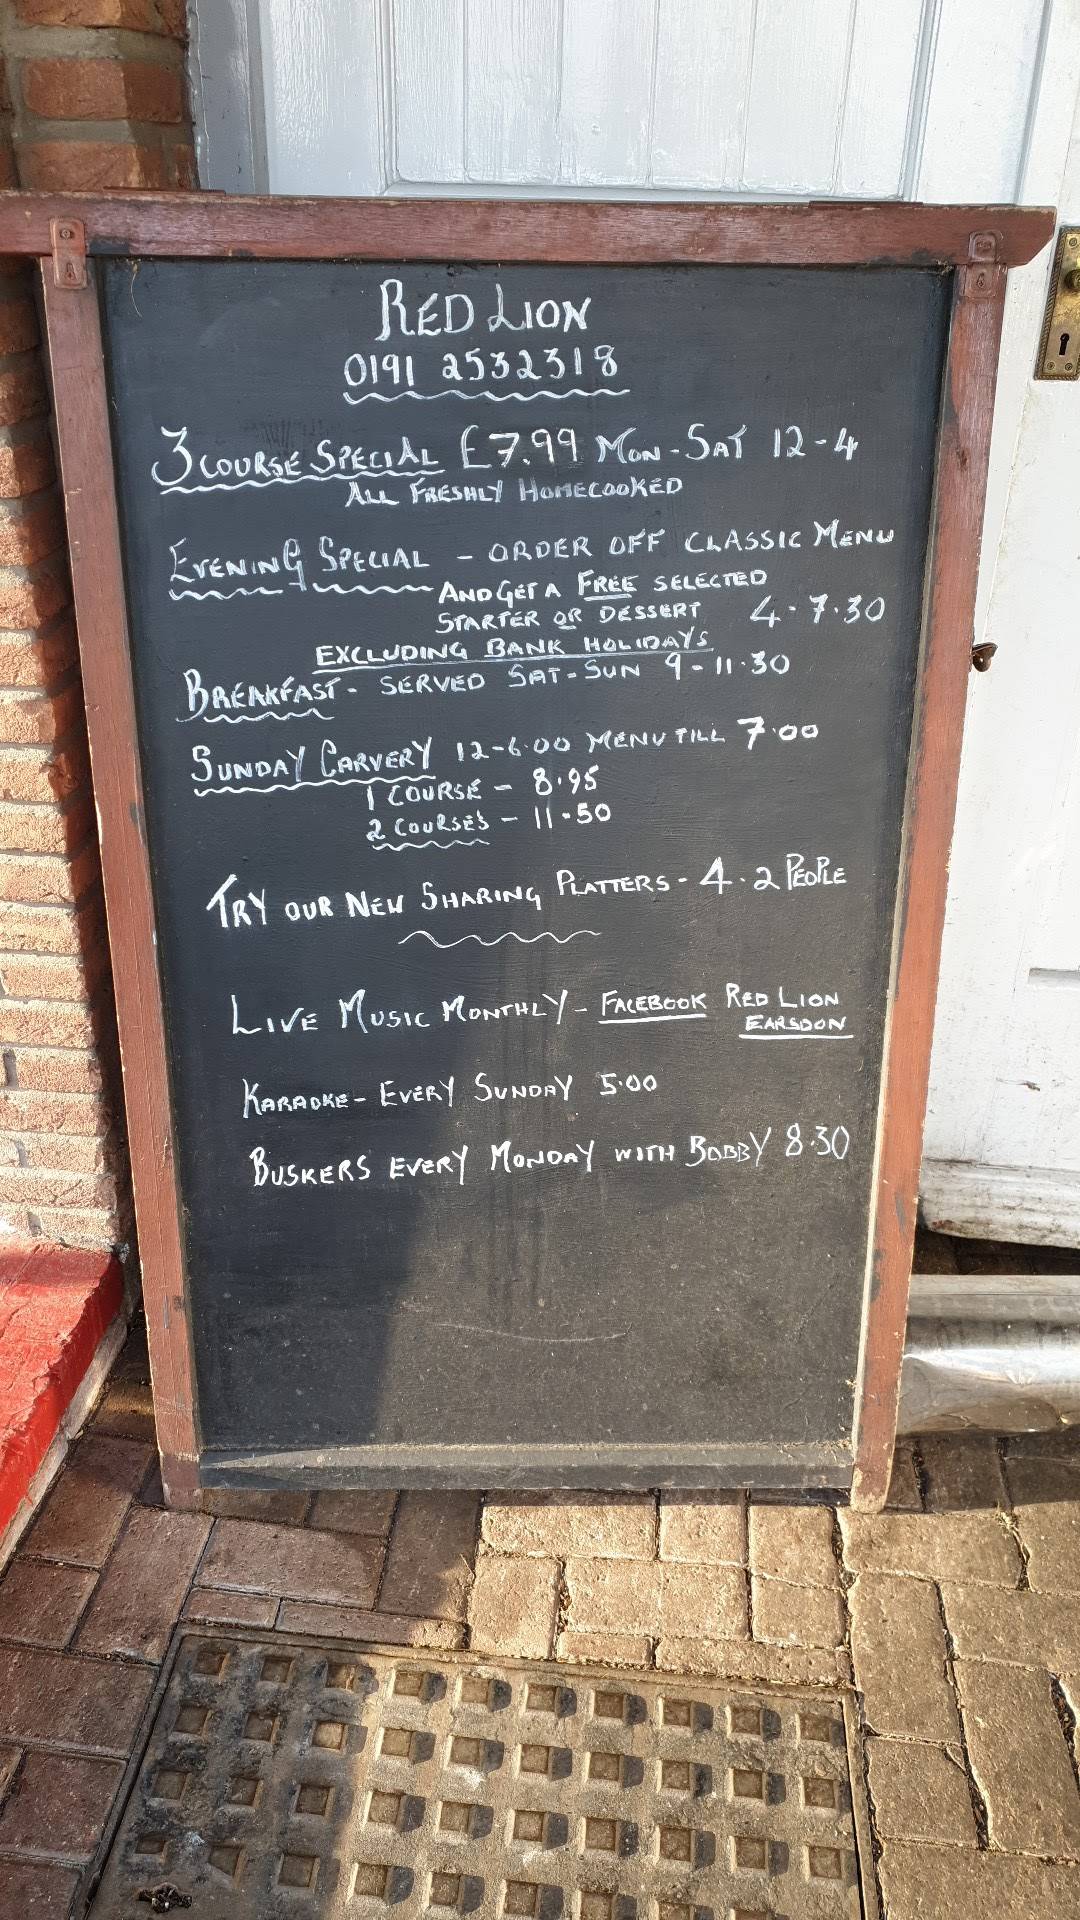 RED LION
0191 2532318
3 COURSE SPECIAL £7.99 MON-SAT 12-4
ALL FRESHLY HOMECOOKED
EVENING SPECIAL - ORDER OFF CLASSIC MENU
AND GET A FREE SELECTED
STARTER OR DESSERT 4-7.30
EXCLUDING BANK HOLIDAYS
BREAKFAST - SERVED SAT-SUN 9-11.30
SUNDAY CARVERY 12-6.00 MENU TILL 7.00
1 COURSE - 8.95
2 COURSES - 11.50
TRY OUR NEW SHARING PLATTERS - 4.2 PEOPLE
LIVE MUSIC MONTHLY - FACEBOOK RED LION
EARSDON
KARAOKE - EVERY SUNDAY 5.00
BUSKERS EVERY MONDAY WITH BOBBY 8.30